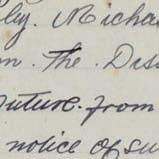 by. Micha
n. The. Dis
uture. from
notice of su